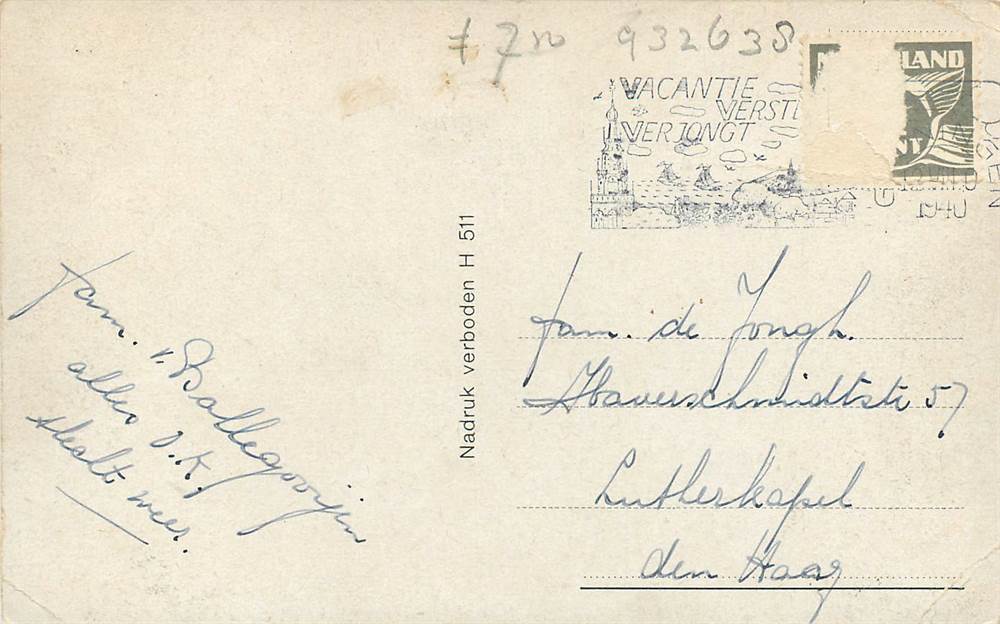 7 932638
VACANTIE
VERST
VERJONGT
LAND
NT
1940
Nadruk verboden H 511
fam. v. Ballegooijen
alles O.K.
slecht weer.
fam. de Jongh.
Haverschmidtstr 57
Lutherkapel
den Haag